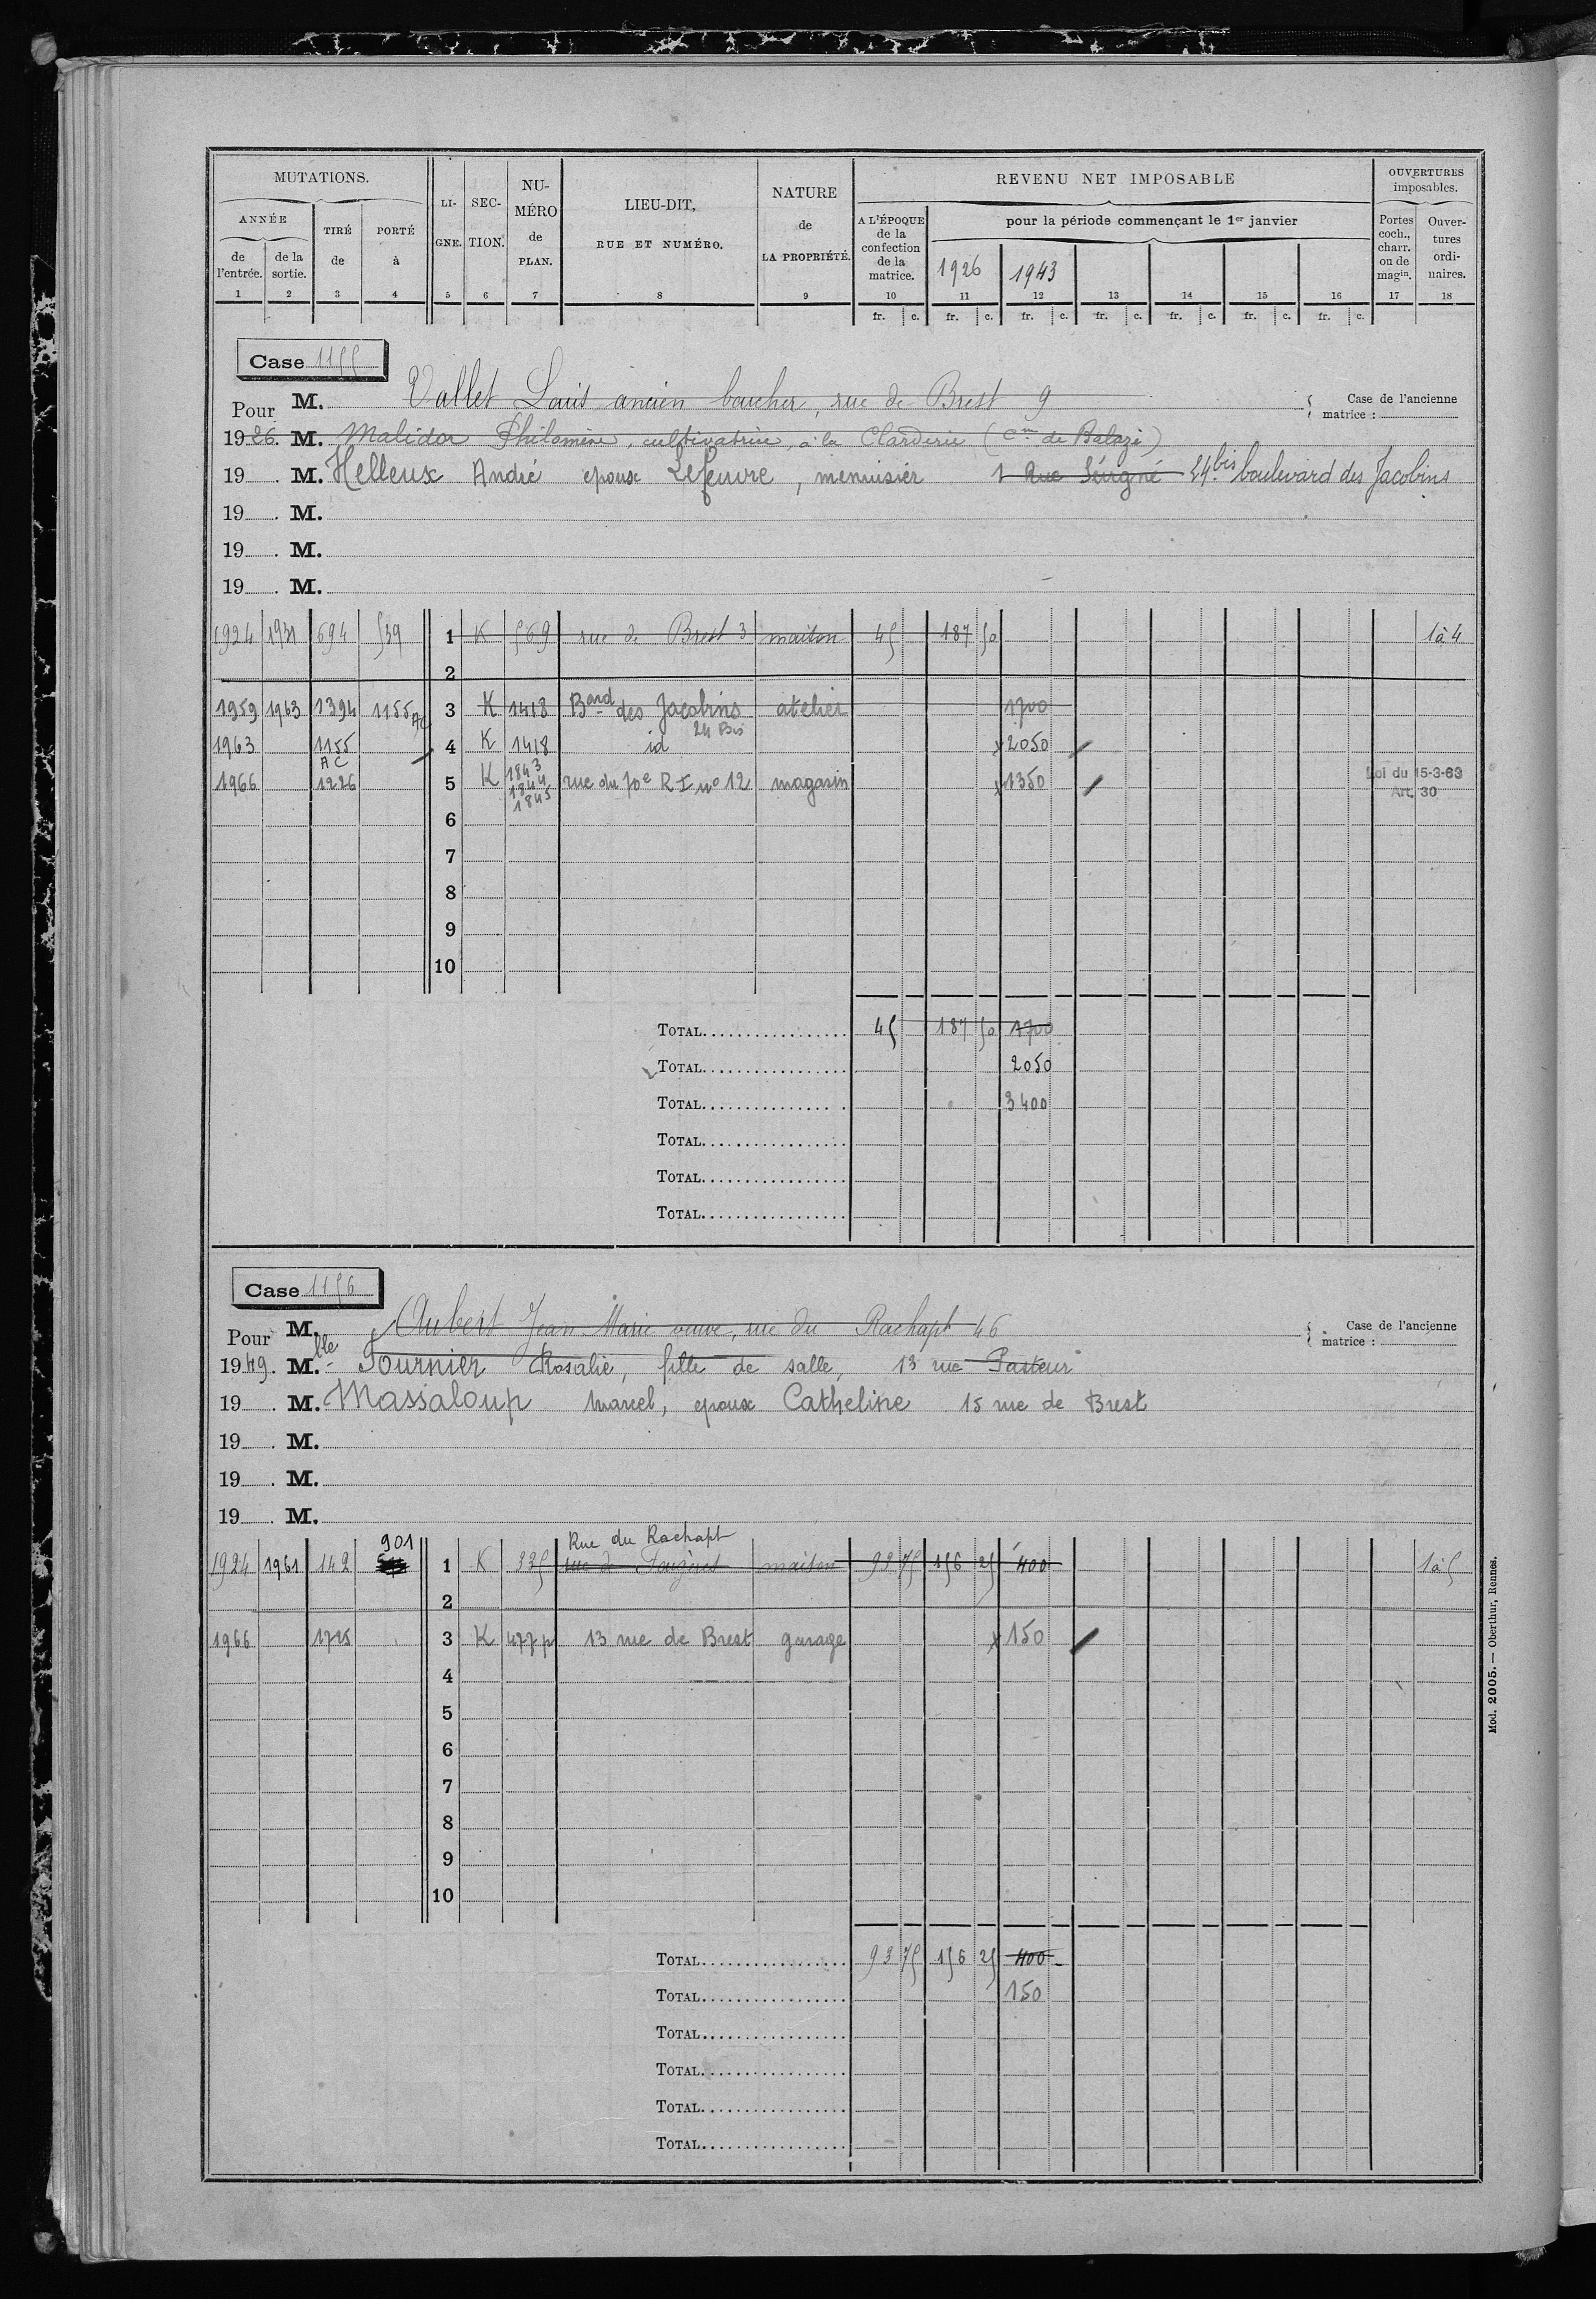 MUTATIONS.
ANNÉE
de l'entrée.
de la sortie.
TIRÉ de
PORTÉ à
LI-GNE.
SEC-TION.
NU-MÉRO de PLAN.
LIEU-DIT, RUE ET NUMÉRO.
NATURE de LA PROPRIÉTÉ.
REVENU NET IMPOSABLE
A L'ÉPOQUE de la confection de la matrice.
pour la période commençant le 1er janvier
1926 1943
OUVERTURES imposables.
Portes coch., charr. ou de magin.
Ouver-tures ordi-naires.
1 2 3 4 5 6 7 8 9 10 11 12 13 14 15 16 17 18
fr. c. fr. c. fr. c. fr. c. fr. c. fr. c. fr. c.
Case 1155
Pour M. Vallet Louis ancien boucher, rue de Brest 9 Case de l'ancienne matrice :
1926. M. Malidor Philomène, cultivatrice, à la Clarderie (Cne de Balazé)
19 . M. Helleux André epoux Lefeuvre, menuisier 1 Rue Sévigné 24bis boulevard des Jacobins
19 . M.
19 . M.
19 . M.
1924 1931 694 539 1 K 569 rue de Brest 3 maison 45 187 50 1à4
2
1959 1963 1394 1155 AC 3 K 1418 Bard des Jacobins atelier 1700
24 Bis
1963 1155 AC 4 K 1418 id x 2050
1966 1226 5 K 1843 1844 1845 rue du 70e RI no 12 magasin x 1350 Loi du 15-3-63 Art. 30
6
7
8
9
10
TOTAL 45 187 50 1700
TOTAL 2050
TOTAL 3400
TOTAL
TOTAL
TOTAL
Case 1156
Pour M. Aubert Jean Marie veuve, rue du Rachapt 46 Case de l'ancienne matrice :
1949. Mlle Fournier Rosalie, fille de salle, 13 rue Pasteur
19 . M. Massaloup Marcel, epoux Catheline 15 rue de Brest
19 . M.
19 . M.
19 . M.
901 Rue du Rachapt
1924 1961 142 1 K 325 rue de Fougères maison 93 75 156 25 400 1à5
2
1966 1725 3 K 477p 13 rue de Brest garage x 150
4
5
6
7
8
9
10
TOTAL 93 75 156 25 400
TOTAL 150
TOTAL
TOTAL
TOTAL
TOTAL
Mod. 2005. — Oberthur, Rennes.